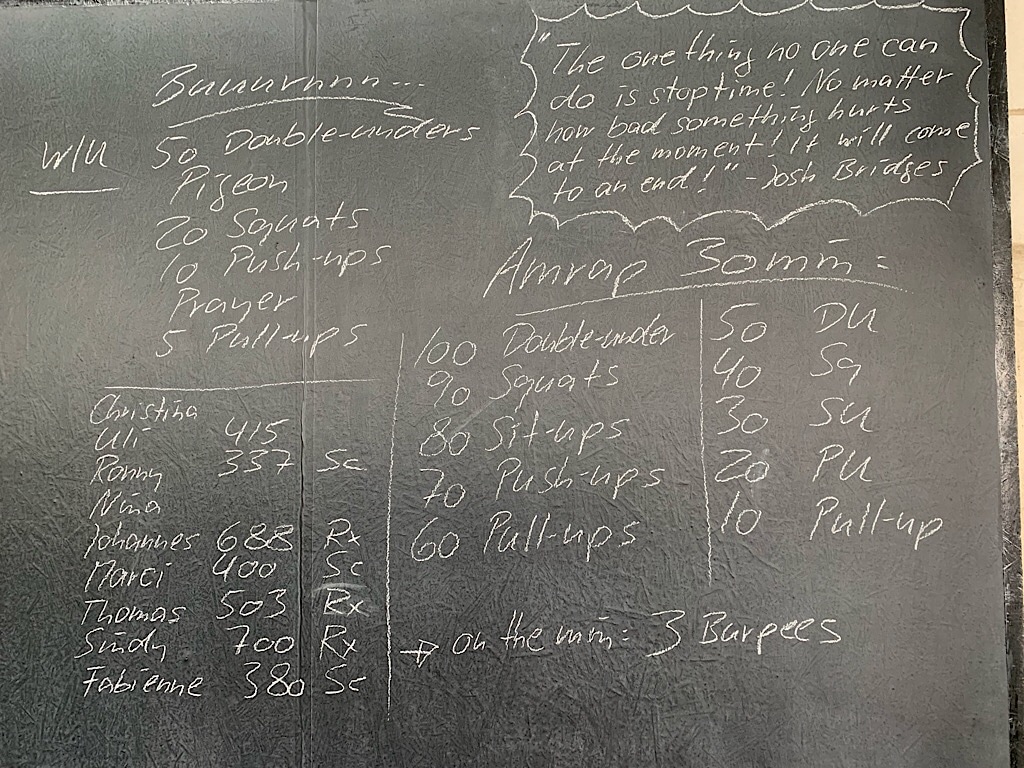 Buuurnnn...
W/U 50 Double-unders
Pigeon
20 Squats
10 Push-ups
Prayer
5 Pull-ups
"The one thing no one can
do is stop time! No matter
how bad something hurts
at the moment! It will come
to an end!" - Josh Bridges
Amrap 30min:
100 Double-under
90 Squats
80 Sit-ups
70 Push-ups
60 Pull-ups
50 DU
40 Sq
30 SU
20 PU
10 Pull-up
→ on the min: 3 Burpees
Christina
Uli 415
Ronny 337 Sc
Nina
Johannes 688 Rx
Marci 400 Sc
Thomas 503 Rx
Sindy 700 Rx
Fabienne 380 Sc